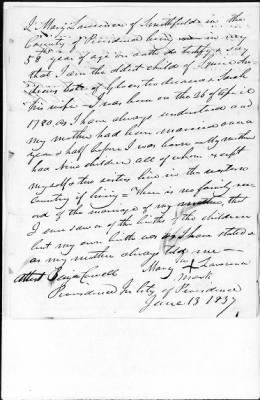 I Mary Lawrence of Smithfield in the
County of Providence being now in my
58 year of age on oath do testify & say
that I am the oldest child of
late of Glocester deceased & Sarah
his wife I was born on the 26 of April
1780, as I have always understood and
my mother had been married once a
year & half before I was born - My mother
had nine children all of whom except
myself & two sisters live in the western
country if living = There is no family rec-
ord of the marriage of my mother, that
I ever saw or of the births of the children
but my own birth was as I have stated &
as my mother always told me -
her
Attest Mary X Lawrence
mark
Providence In City of Providence
June 13 1837